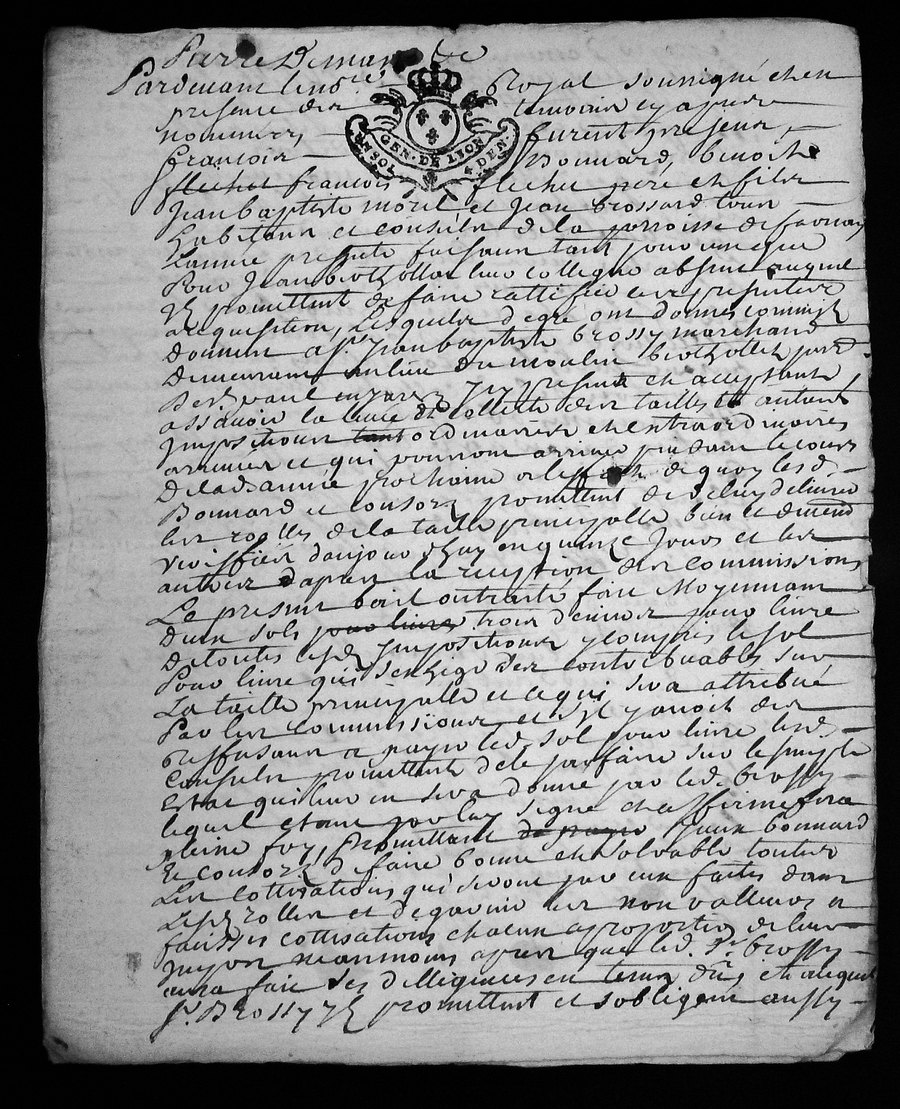 Pierre Demar
Pardevant le no.re Royal soussigné et en
presence des temoins cy apres
nommes, furent presens,
françois Bonnard, benoist
flechet françois flechet pere et fils
Jean baptiste morel et Jean brossard tous
habitans et consulz de la parroisse de
l'année presente faisans tant pour eux que
Pour Jean leur collegue absent auquel
Ilz promettent de faire rattiffier les presentes a
requisition, Lesquels de gré ont donnés comme ilz
donnent a s.r Jean baptiste brossy marchand
demeurant au lieu du moulin par.sse
De s.t paul en jarez Icy present et acceptant
assavoir la levée et collecte des tailles et autres
Impositions tant ordinaires et extraordinaires
arrivées et qui pourront arriver pendant le cours
De lad. année prochaine a l'effect de quoy lesd.
Bonnard et consorz promettent de luy delivrer
les rolles de la taille principalle bien et deuem.t
veriffiés d'aujourd'huy en quinze Jours et les
autres d'apres la reception des commissions
Le present bail et traité fait Moyennant
deux sols pour livre trois deniers pour livre
de toutes lesd. Impositions y compris le sol
Pour livre qui s'exige des contribuables sur
La taille principalle et ce qui sera attribué
Par les commissions, et s'il y avoit des
Reffusans a payer led. sol pour livre lesd.
Consulz promettent de le parfaire sur le simple
estat qui leur en sera donné par led. brossy
lequel etant par luy signé et affirmé fera
pleine foy, Promettant de payer Iceux bonnard
et consorz de faire bonne et solvable toutes
Les cottisations qui seront par eux faites dans
Lesd. rolles et de garantir les non valleurs et
fausses cottisations chacun a proportion de leur
neanmoins apres que led. s.r brossy
aura fait ses dilligences en tems dû, et auquel
s.r Brossy Ilz promettent et s'obligent aussy
GEN. DE LION
UN SOL 4 DEN.